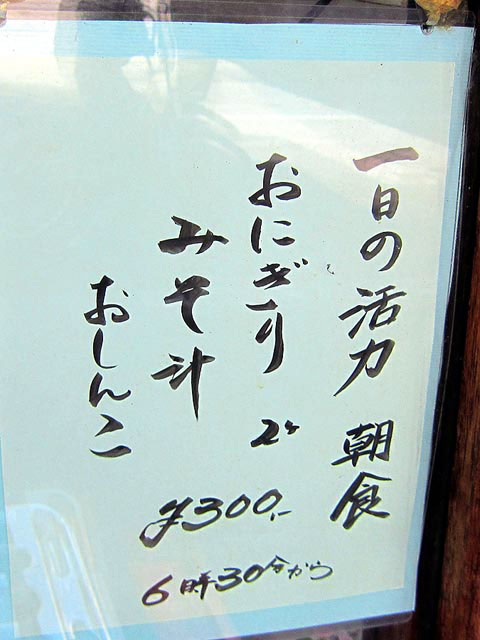 一日の活力 朝食
おにぎり 2ヶ
みそ汁
おしんこ
¥300.-
6時30分から